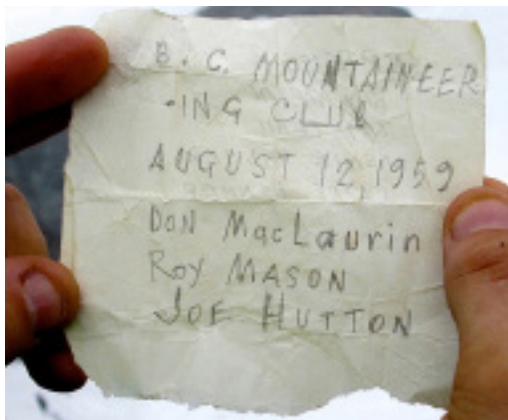 B. C. MOUNTAINEER
-ING CLUB
AUGUST 12, 1959
DON MacLaurin
ROY MASON
JOE HUTTON